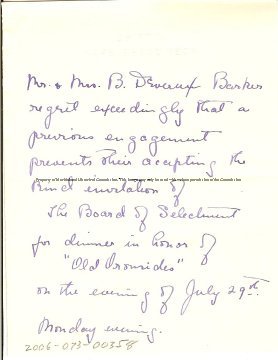 Mr. & Mrs. B. Devereux Barker
regret exceedingly that a
previous engagement
prevents their accepting the
kind invitation of
The Board of Selectment
for dinner in honor of
"Old Ironsides"
on the evening of July 29th.
Monday evening.
2006-073-00358